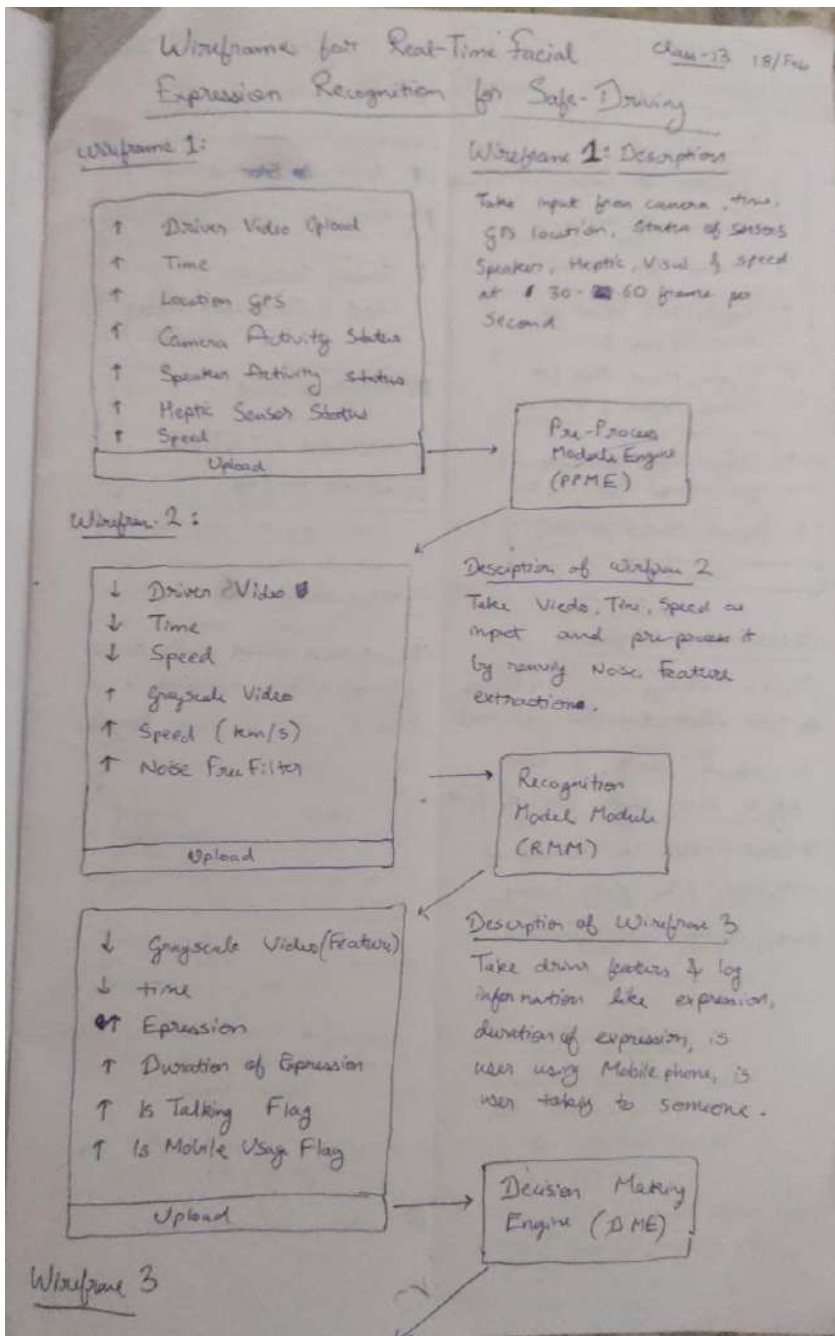 Wireframe for Real-Time Facial
Expression Recognition for Safe-Driving
Class-13 18/Feb
Wireframe 1:
↑ Driver Video Upload
↑ Time
↑ Location GPS
↑ Camera Activity Status
↑ Speaker Activity Status
↑ Heptic Sensor Status
↑ Speed
Upload
Wireframe 1: Description
Take input from camera, time,
GPS location, Status of sensors
Speaker, Heptic, Visul & speed
at 30- 60 frame per
Second
Pre-Process
Module Engine
(PPME)
Wirefram 2:
↓ Driver Video
↓ Time
↓ Speed
↑ Grayscale Video
↑ Speed (km/s)
↑ Noise Free Filter
Upload
Desciption of Wirfram 2
Take Viedo, Time, Speed as
input and pre-process it
by Noise, Feature
extractions.
Recognition
Model Module
(RMM)
↓ Grayscale Video (Feature)
↓ time
↑ Epression
↑ Duration of Expression
↑ Is Talking Flag
↑ Is Mobile Usage Flag
Upload
Description of Wireframe 3
Take driver features & log
information like expression,
duration of expression, is
user using Mobile phone, is
user to someone.
Decision Making
Engine (DME)
Wireframe 3